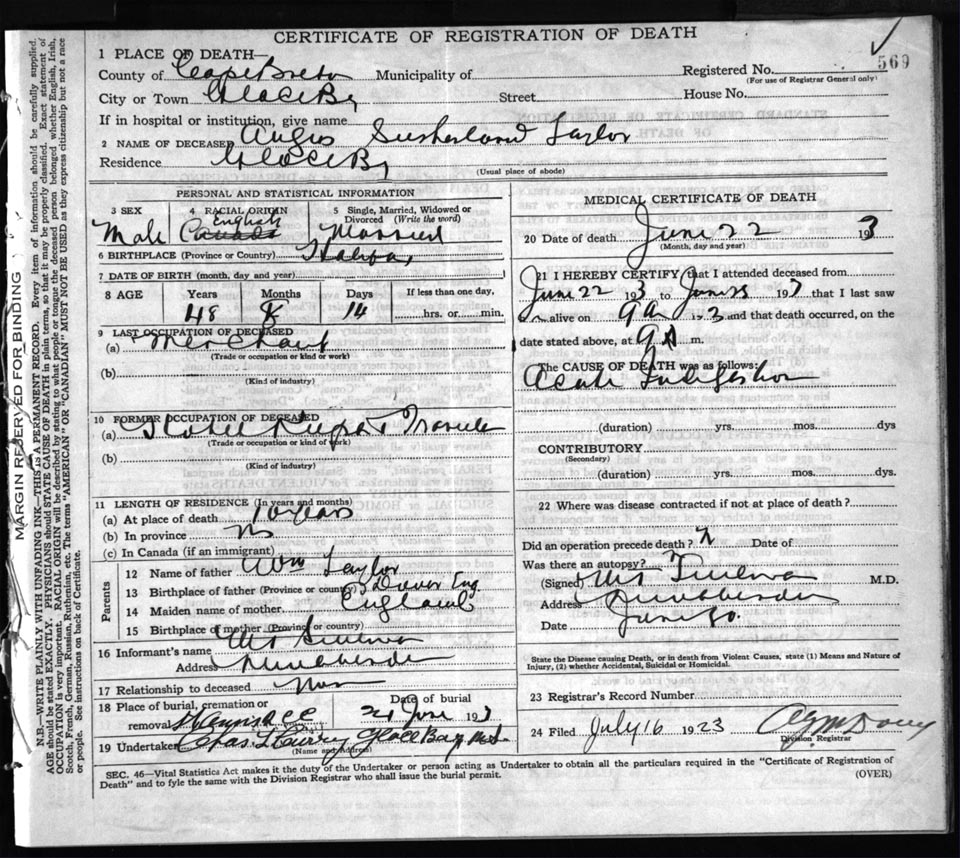 CERTIFICATE OF REGISTRATION OF DEATH
569
1 PLACE OF DEATH—
County of Cape Breton Municipality of Registered No.
(For use of Registrar General only)
City or Town Glace By Street House No.
If in hospital or institution, give name
2 NAME OF DECEASED Angus Sutherland Taylor
Residence Glace By
(Usual place of abode)
PERSONAL AND STATISTICAL INFORMATION
3 SEX 4 RACIAL ORIGIN 5 Single, Married, Widowed or Divorced (Write the word)
Male English Married
6 BIRTHPLACE (Province or Country) Halifax
7 DATE OF BIRTH (month, day and year)
8 AGE Years Months Days If less than one day,
48 8 14 hrs. or min.
9 LAST OCCUPATION OF DECEASED
(a) Merchant
(Trade or occupation or kind or work)
(b)
(Kind of industry)
10 FORMER OCCUPATION OF DECEASED
(a)
(Trade or occupation or kind of work)
(b)
(Kind of industry)
11 LENGTH OF RESIDENCE (In years and months)
(a) At place of death 10 years
(b) In province
(c) In Canada (if an immigrant)
Parents
12 Name of father Wm Taylor
13 Birthplace of father (Province or country) Dover Eng
14 Maiden name of mother England
15 Birthplace of mother (Province or country)
16 Informant's name
Address
17 Relationship to deceased
18 Place of burial, cremation or removal Date of burial
24 June 193
19 Undertaker Chas Glace Bay
(Name and Address)
MEDICAL CERTIFICATE OF DEATH
20 Date of death June 22 193
(Month, day and year)
21 I HEREBY CERTIFY that I attended deceased from
June 22 193 to 193 that I last saw
alive on 9 a 193 and that death occurred, on
date stated above, at 9 A m.
The CAUSE OF DEATH was as follows:
Acute Indigestion
(duration) yrs. mos. dys
CONTRIBUTORY
(Secondary)
(duration) yrs. mos. dys.
22 Where was disease contracted if not at place of death?
Did an operation precede death? Date of
Was there an autopsy?
(Signed) M.D.
Address
Date June 30.
State the Disease causing Death, or in death from Violent Causes, state (1) Means and Nature of
Injury, (2) whether Accidental, Suicidal or Homicidal.
23 Registrar's Record Number
24 Filed July 16 1923
Division Registrar
SEC. 46—Vital Statistics Act makes it the duty of the Undertaker or person acting as Undertaker to obtain all the particulars required in the "Certificate of Registration of
Death" and to fyle the same with the Division Registrar who shall issue the burial permit.
(OVER)
MARGIN RESERVED FOR BINDING
N.B.—WRITE PLAINLY WITH UNFADING INK—THIS IS A PERMANENT RECORD. Every item of information should be carefully supplied.
AGE should be stated EXACTLY. PHYSICIANS should STATE CAUSE OF DEATH in plain terms, so that it may be properly classified. Exact statement of
OCCUPATION is very important. RACIAL ORIGIN will be described by stating to what people or tongue the deceased person belonged whether English, Irish,
Scotch, French, German, Russian, Ruthenian, etc. The terms "AMERICAN" or "CANADIAN" MUST NOT BE USED as they express citizenship but not a race
or people. See instructions on back of Certificate.